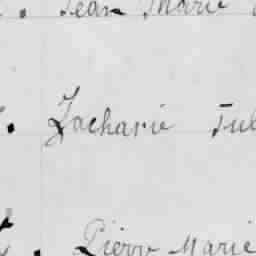 Jean Marie
Zacharie Jul
Pierre Marie